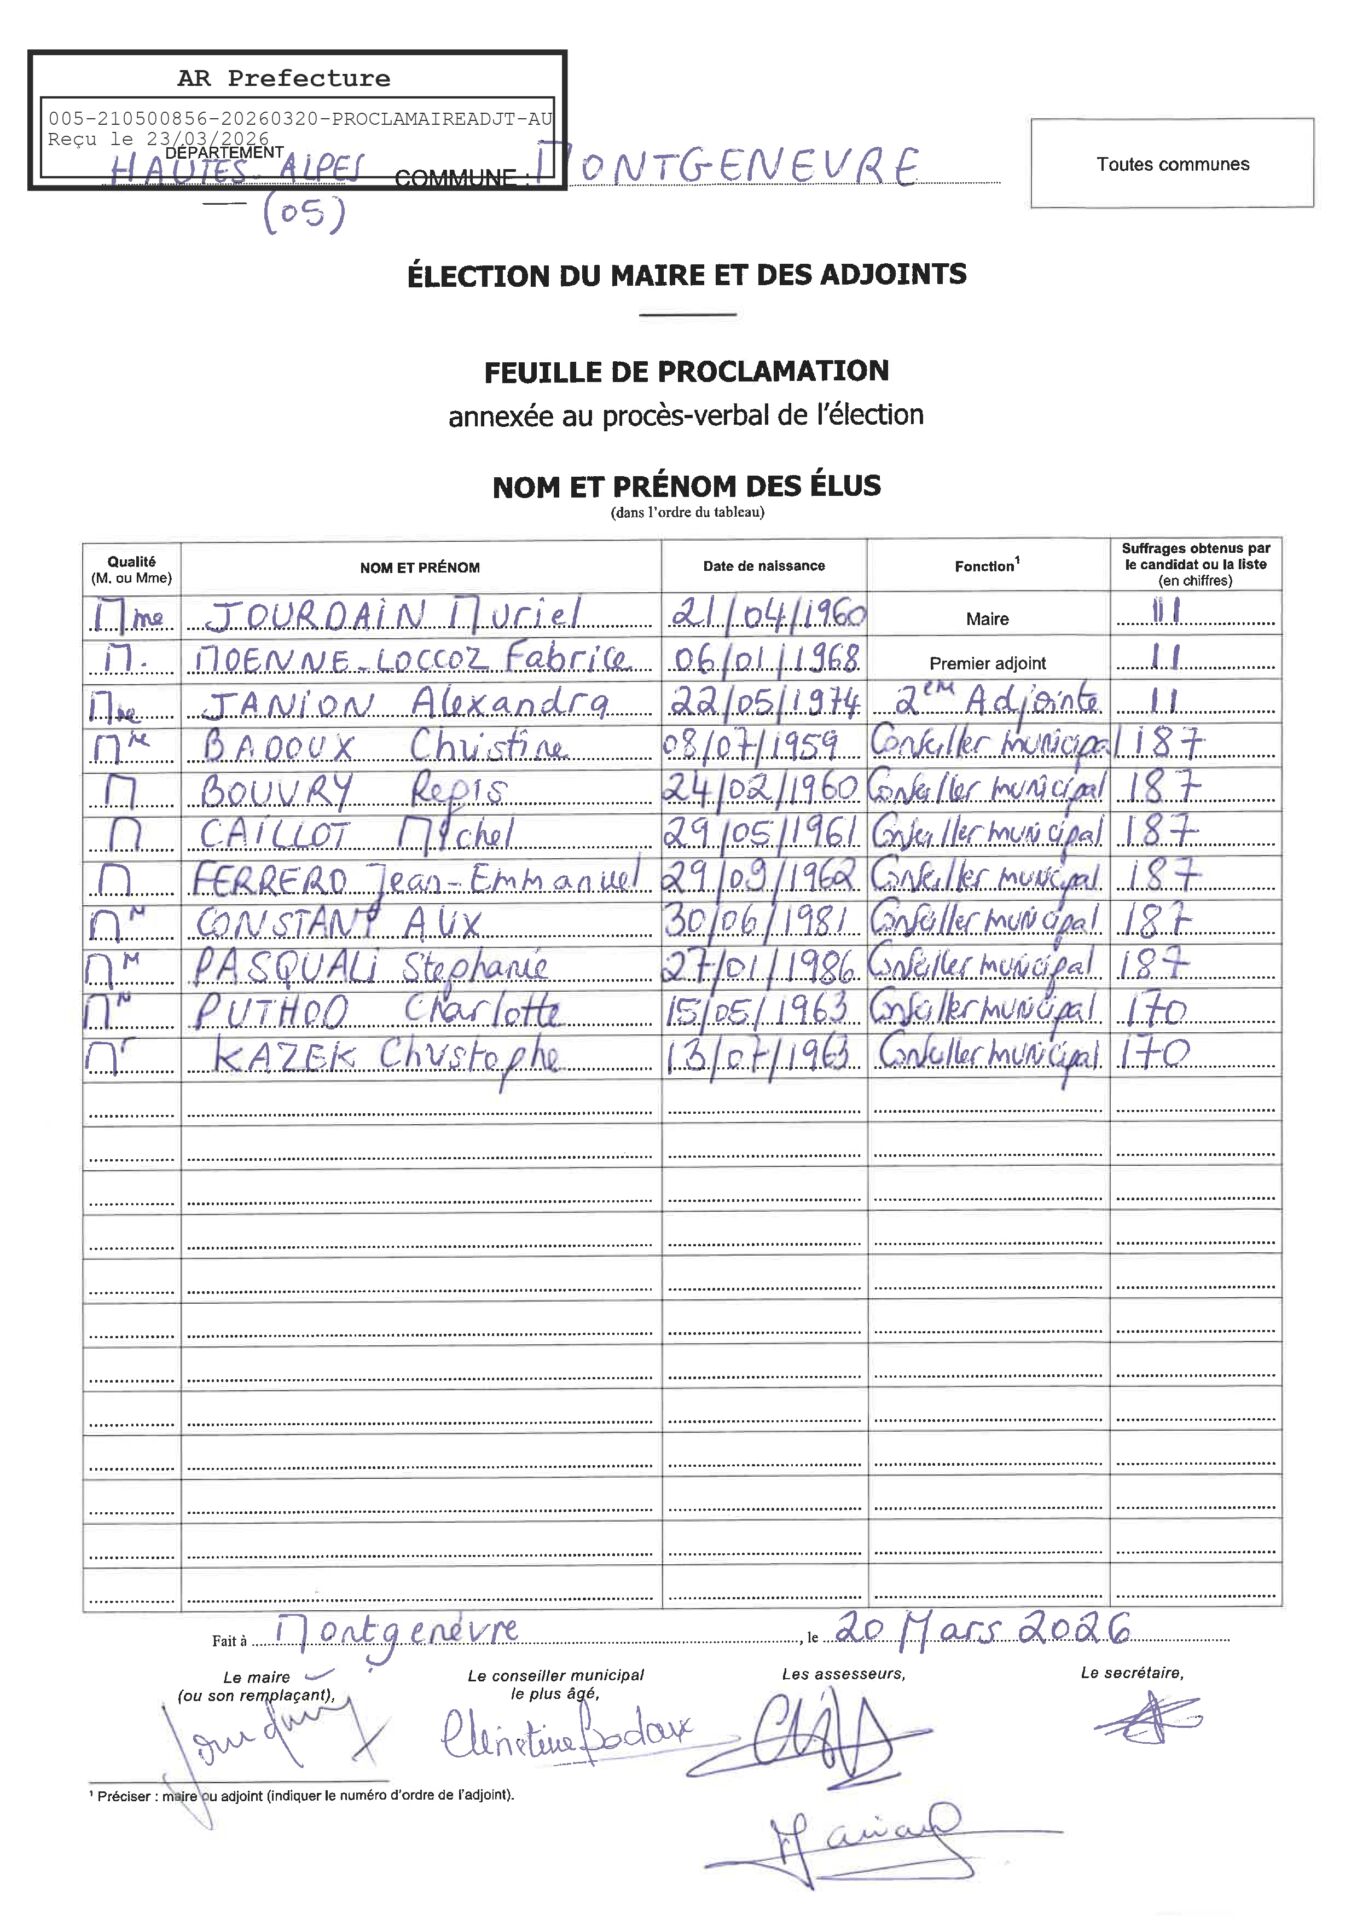 AR Prefecture
005-210500856-20260320-PROCLAMAIREADJT-AU
Reçu le 23/03/2026
DÉPARTEMENT
HAUTES-ALPES COMMUNE : MONTGENEVRE
(05)
Toutes communes
ÉLECTION DU MAIRE ET DES ADJOINTS
FEUILLE DE PROCLAMATION
annexée au procès-verbal de l'élection
NOM ET PRÉNOM DES ÉLUS
(dans l'ordre du tableau)
Qualité (M. ou Mme) NOM ET PRÉNOM Date de naissance Fonction¹ Suffrages obtenus par le candidat ou la liste (en chiffres)
Mme JOURDAIN Muriel 21/04/1960 Maire 11
M. MOENNE-LOCCOZ Fabrice 06/01/1968 Premier adjoint 11
Mme JANION Alexandra 22/05/1974 2em Adjointe 11
Mme BADOUX Christine 08/07/1959 Conseiller municipal 187
M BOUVRY Regis 24/02/1960 Conseiller municipal 187
M CAILLOT Michel 29/05/1961 Conseiller municipal 187
M FERRERO Jean-Emmanuel 29/09/1962 Conseiller municipal 187
Mme CONSTANT 30/06/1981 Conseiller municipal 187
Mme PASQUALI Stephanie 27/01/1986 Conseiller municipal 187
Mme PUTHOD Charlotte 15/05/1963 Conseiller municipal 170
Mr KAZEK Christophe 13/07/1963 Conseiller municipal 170
Fait à Montgenèvre, le 20 Mars 2026
Le maire (ou son remplaçant),
Le conseiller municipal le plus âgé,
Les assesseurs,
Le secrétaire,
Jourdain
Christine Badoux
¹ Préciser : maire ou adjoint (indiquer le numéro d'ordre de l'adjoint).